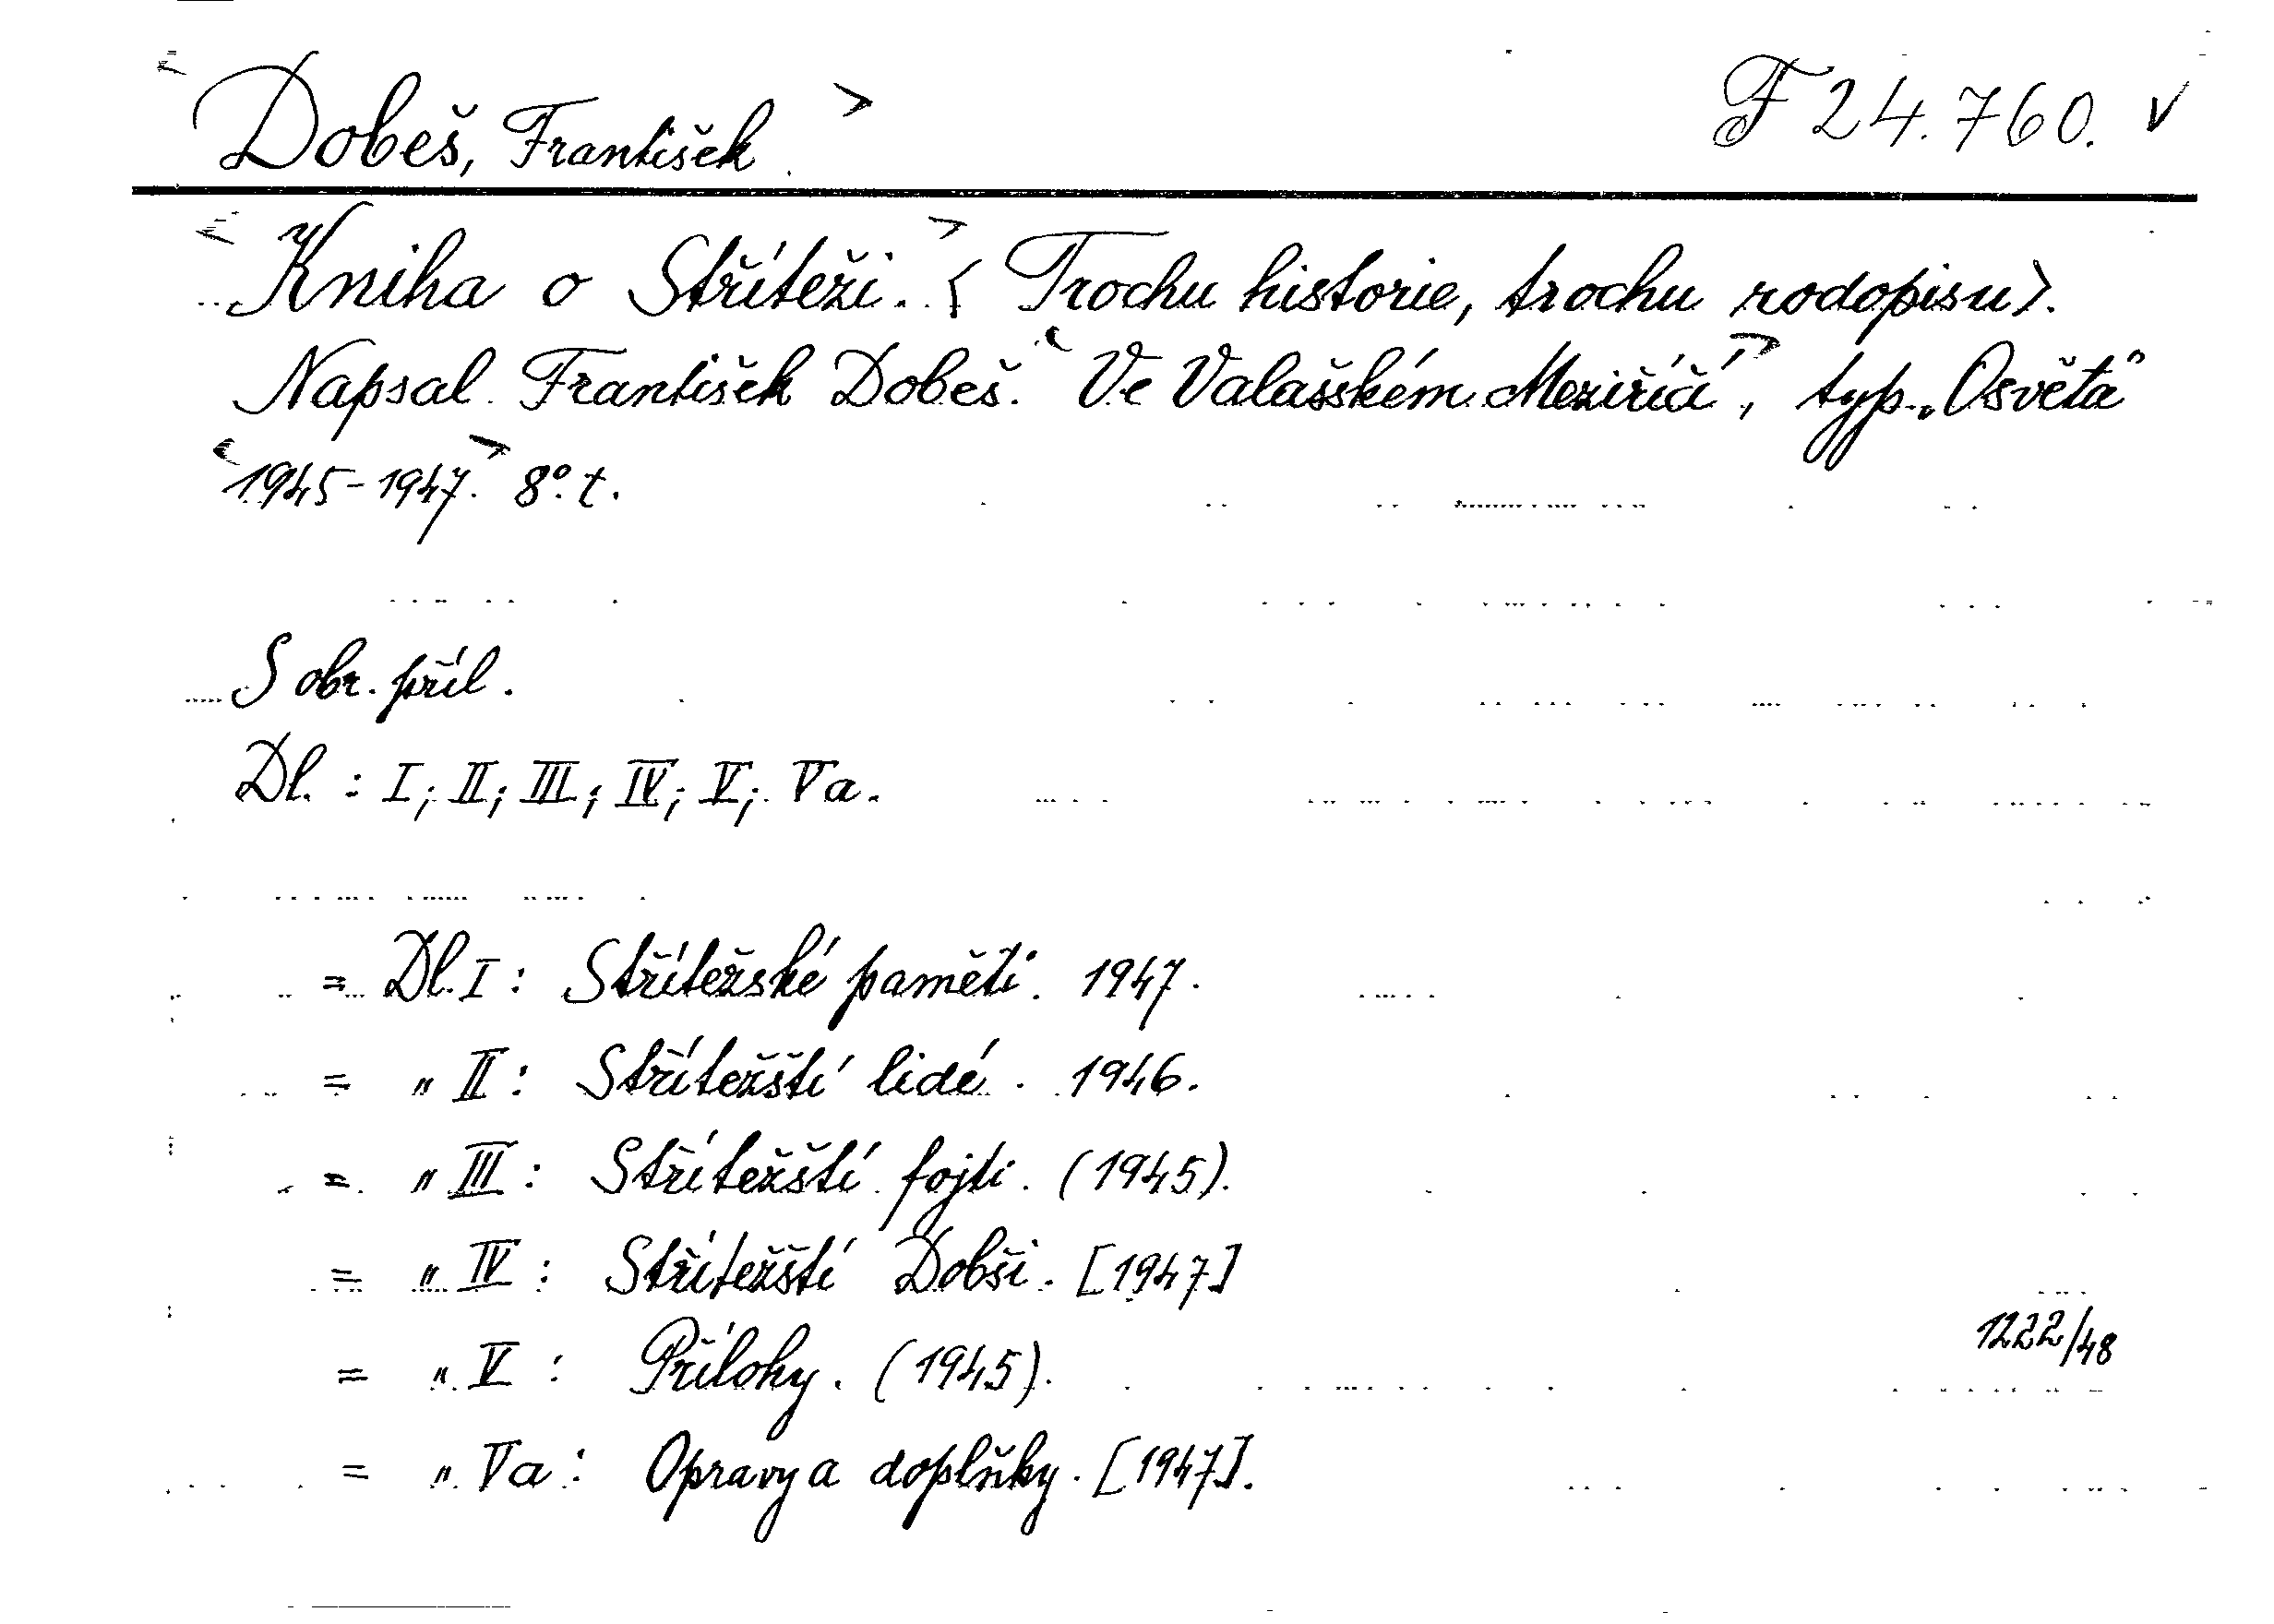 Dobeš, František. F 24.760. v
Kniha o Střítěži. (Trochu historie, trochu rodopisu).
Napsal František Dobeš. Ve Valašském Meziříčí, typ. „Osvěta“
1945-1947. 8° t.
S obr. příl.
Dl. : I; II; III; IV; V; Va.
= Dl. I : Střítežské paměti. 1947.
= „ II : Střítežští lidé. 1946.
= „ III : Střítežští fojti. (1945).
= „ IV : Střítežští Dobši. [1947]
= „ V : Přílohy. (1945).
1222/48
= „ Va : Opravy a doplňky. [1947].